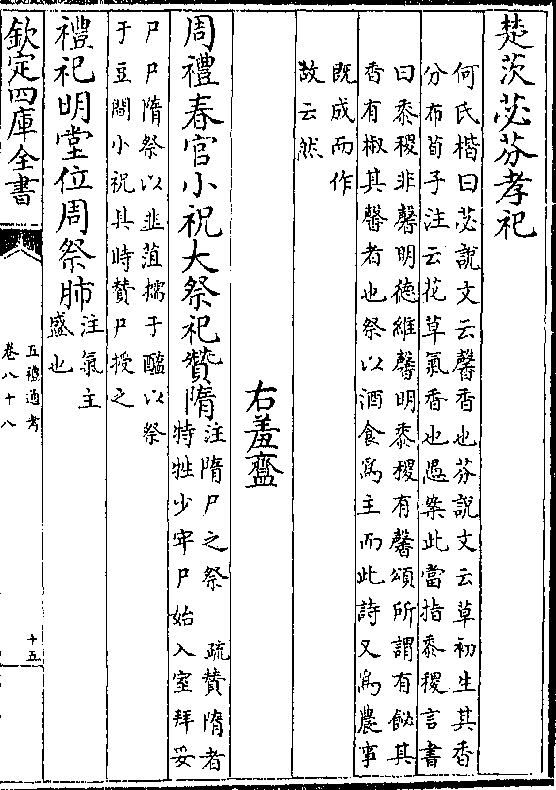 楚茨苾芬孝祀
何氏楷曰苾說文云馨香也芬說文云草初生其香
分布荀子注云花草氣香也愚案此當指黍稷言書
曰黍稷非馨明德維馨明黍稷有馨頌所謂有飶其
香有椒其馨者也祭以酒食為主而此詩又為農事
既成而作
故云然
右羞齍
周禮春官小祝大祭祀贊隋
注隋尸之祭　疏贊隋者
特牲少牢尸始入室拜妥
尸尸隋祭以韭菹擩于醢以祭
于豆間小祝其時贊尸授之
禮祀明堂位周祭肺
注氣主
盛也
欽定四庫全書
五禮通考
卷八十八
十五